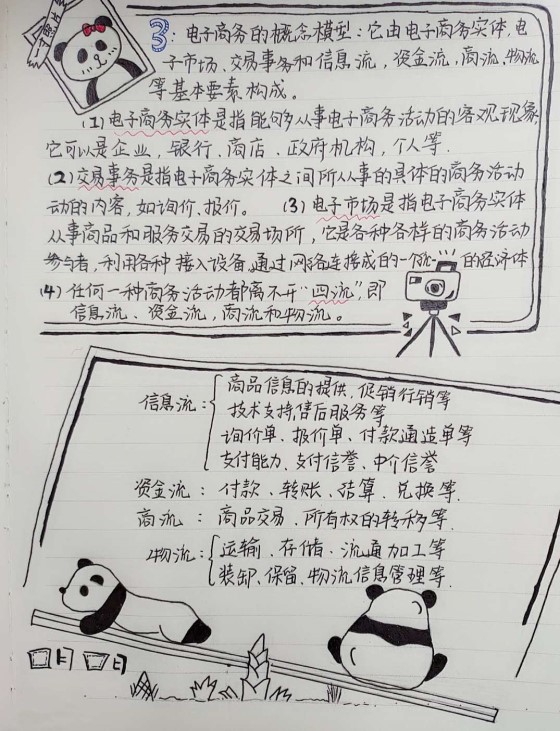 一寸照片
3：电子商务的概念模型：它由电子商务实体，电
子市场、交易事务和信息流，资金流，商流，物流
等基本要素构成。
(1) 电子商务实体是指能够从事电子商务活动的客观现象，
它可以是企业，银行、商店、政府机构，个人等.
(2) 交易事务是指电子商务实体之间所从事的具体的商务活动
动的内容，如询价、报价。 (3) 电子市场是指电子商务实体
从事商品和服务交易的交易场所，它是各种各样的商务活动
参与者，利用各种接入设备，通过网络连接成的一个统一的经济体
(4) 任何一种商务活动都离不开“四流”，即
信息流、资金流，商流和物流。
信息流：商品信息的提供，促销行销等
技术支持售后服务等
询价单、报价单、付款通造单等
支付能力、支付信誉、中介信誉
资金流：付款、转账、结算、兑换等.
商流：商品交易、所有权的转移等.
物流：运输、存储、流通加工等
装卸、保留、物流信息管理等.